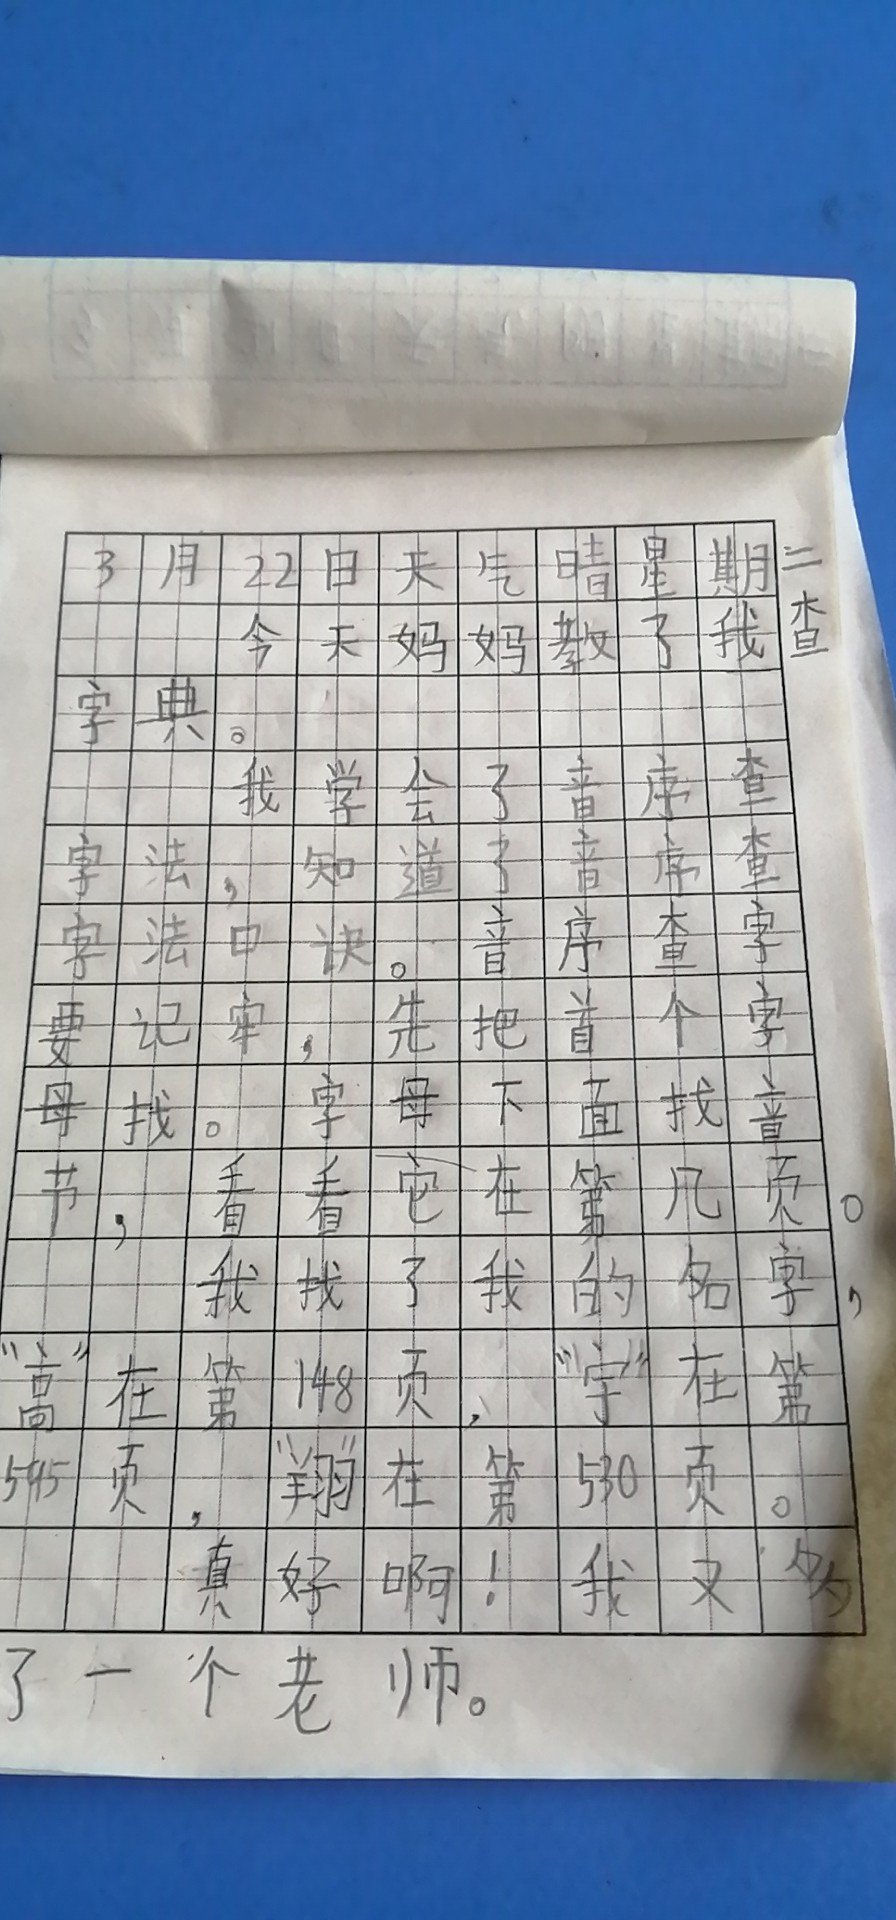 3月22日天气晴星期二
今天妈妈教了我查
字典。
我学会了音序查
字法,知道了音序查
字法口诀。音序查字
要记牢,先把首个字
母找。字母下面找音
节,看看它在第几页。
我找了我的名字,
“高”在第148页,“字”在第
595页,“翔”在第530页。
真好啊!我又多
了一个老师。